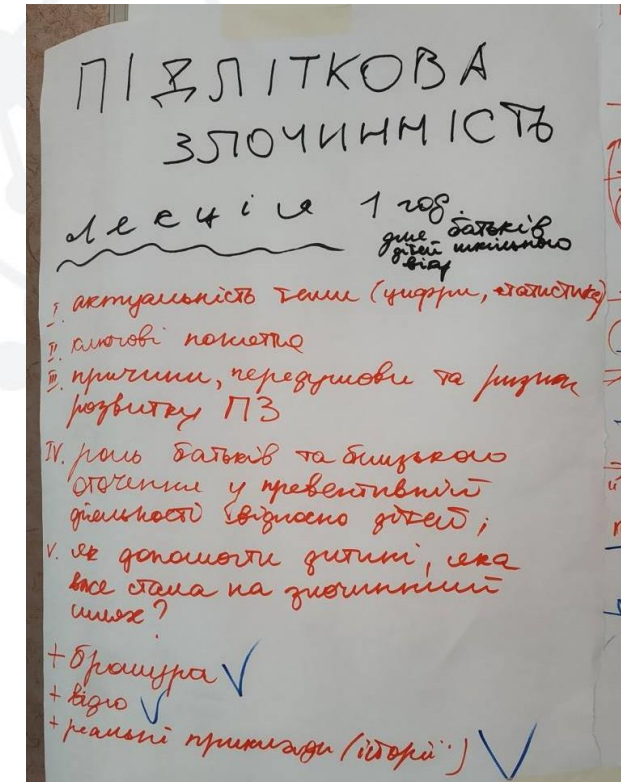 ПІДЛІТКОВА
ЗЛОЧИННІСТЬ
лекція 1 год.
для батьків
дітей шкільного
віку
I. актуальність теми (цифри, статистика)
II. ключові поняття
III. причини, передумови та ризики
розвитку ПЗ
IV. роль батьків та близького
оточення у превентивній
діяльності відносно дітей;
V. як допомогти дитині, яка
вже стала на злочинний
шлях?
+ брошура
+ відео
+ реальні приклади (історії)